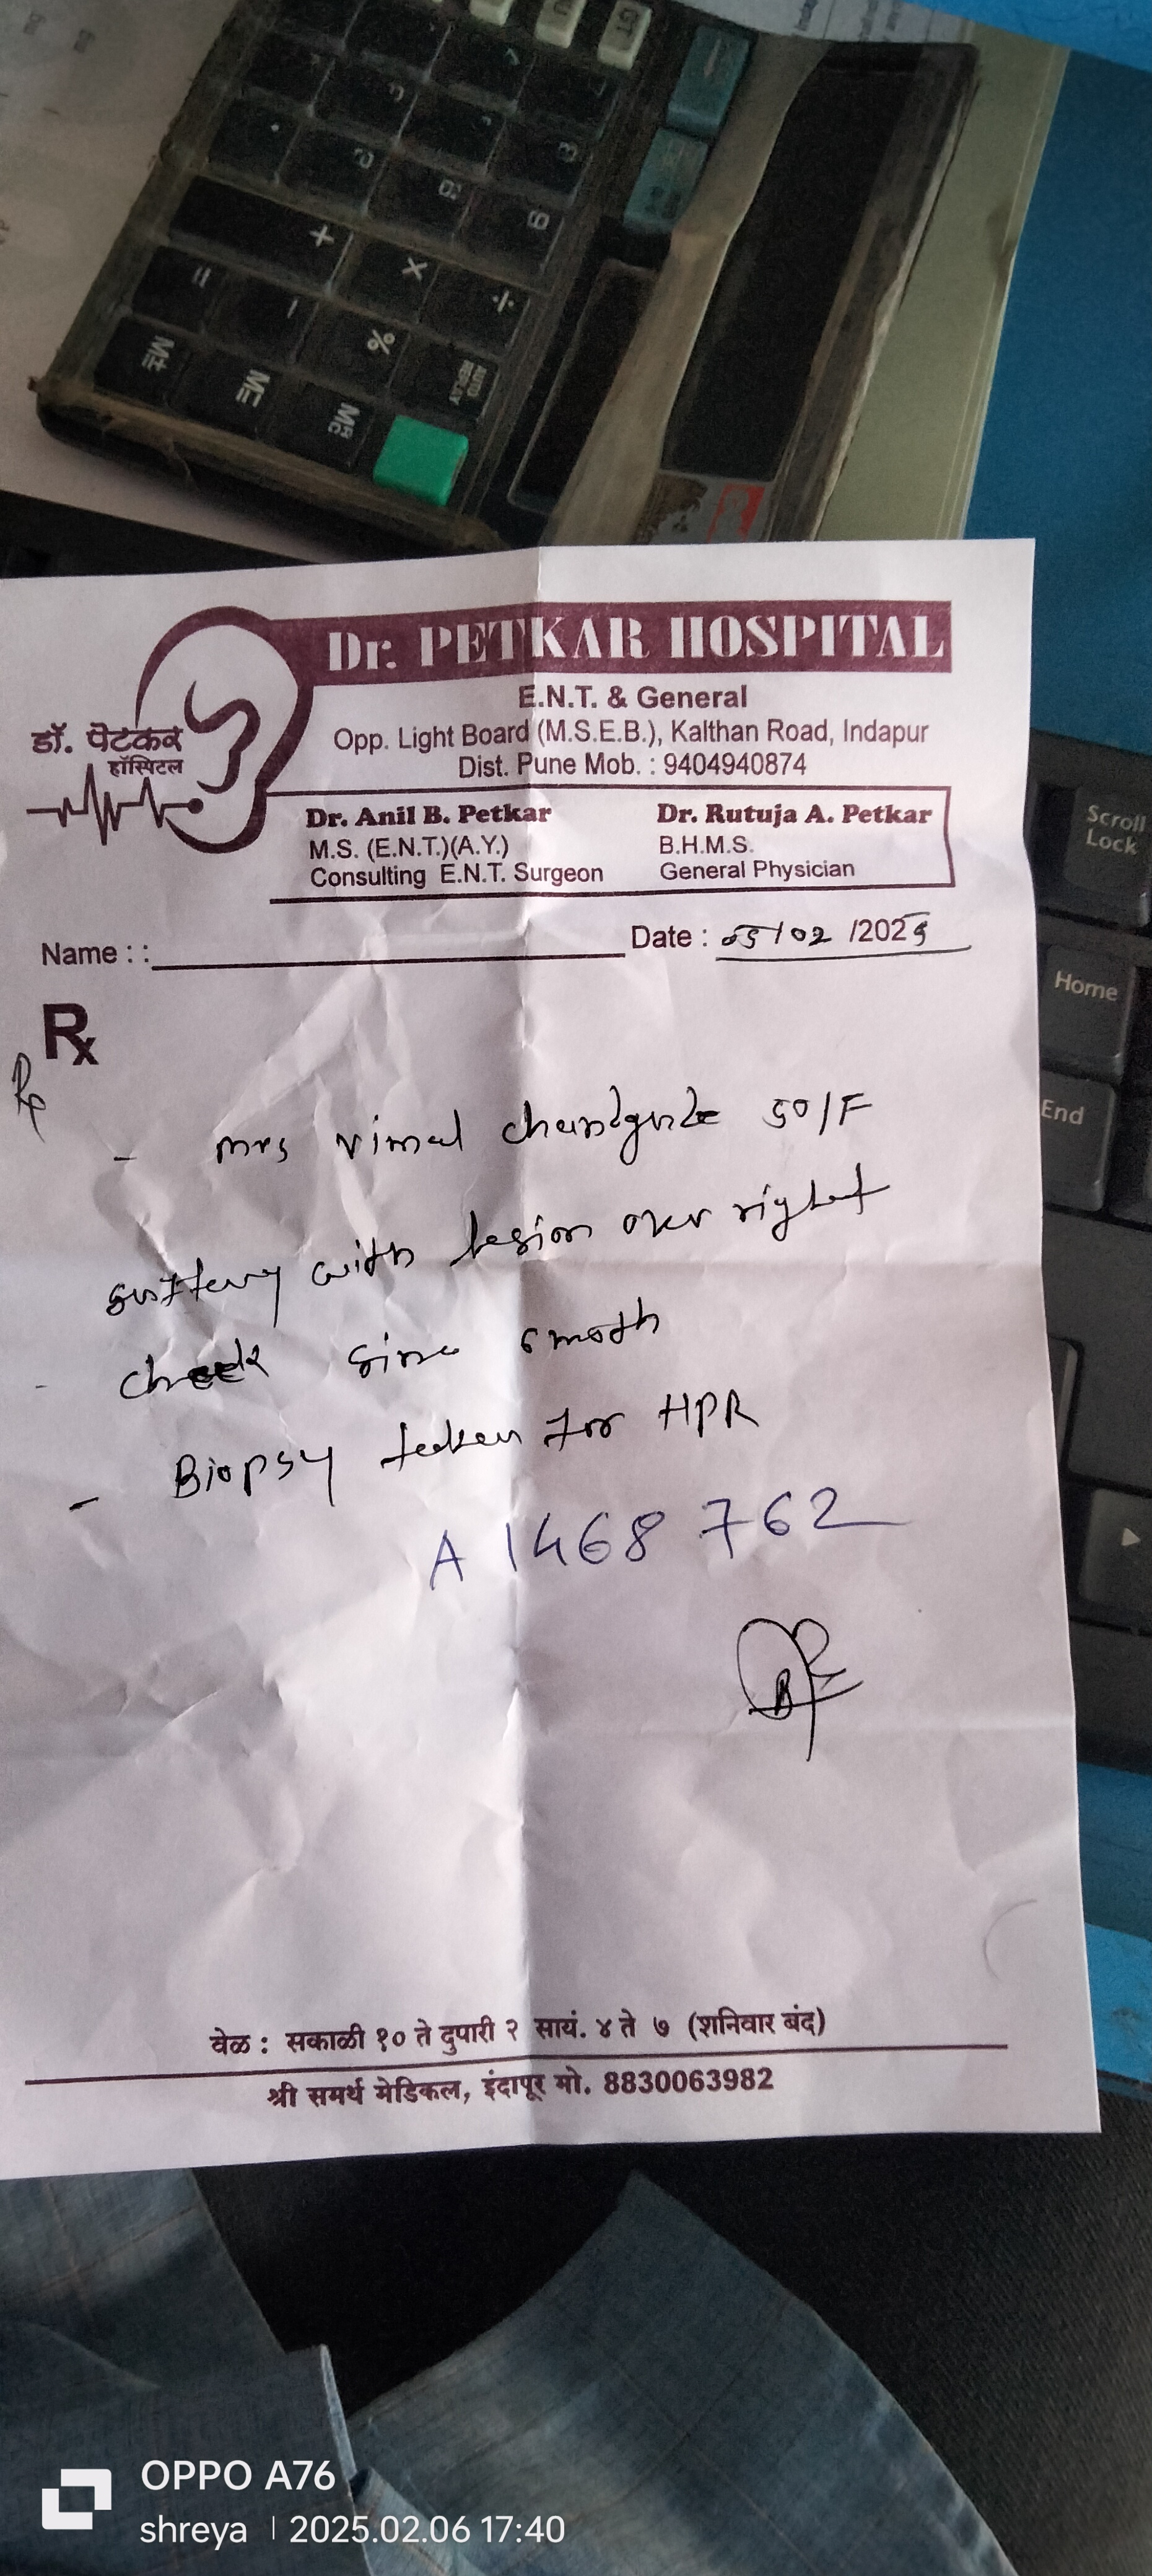 GT
+
6
÷
×
=
−
%
M±
M=
MR
C
AUTO
REPLAY
डॉ. पेटकर
हॉस्पिटल
Dr. PETKAR HOSPITAL
E.N.T. & General
Opp. Light Board (M.S.E.B.), Kalthan Road, Indapur
Dist. Pune Mob. : 9404940874
Dr. Anil B. Petkar
M.S. (E.N.T.)(A.Y.)
Consulting E.N.T. Surgeon
Dr. Rutuja A. Petkar
B.H.M.S.
General Physician
Name : :
Date : 05/02 /2025
Rx
- mrs vimal 50/F
with lesion over right
- cheek since 6 moth
- Biopsy taken for HPR
A 1468 762
वेळ : सकाळी १० ते दुपारी २ सायं. ४ ते ७ (शनिवार बंद)
श्री समर्थ मेडिकल, इंदापूर मो. 8830063982
Scroll
Lock
Home
End
OPPO A76
shreya | 2025.02.06 17:40